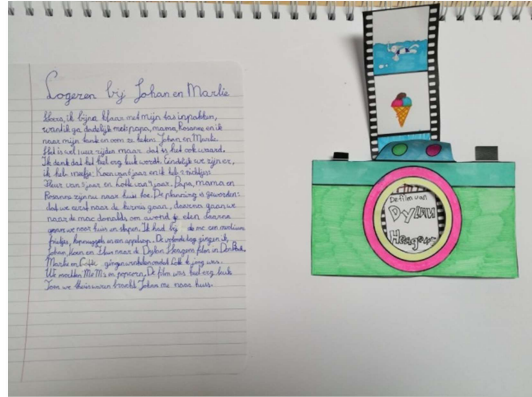 Logeren bij Johan en Marlie
Hoera, ik bijna klaar met mijn tas inpakken,
want ik ga dadelijk met papa, mama, Rosanne en ik
naar mijn tante en oom
Johan en Marlie.
Het is wel uur rijden maar dat is het ook waard.
Ik denk dat het heel erg leuk wordt. Eindelijk we zijn er,
ik heb neefje: Koen van jaar en ik heb 2 nichtjes:
Fleur van jaar en Lotte van jaar. Papa, mama en
Rosanne zijn nu naar huis toe. De planning is geworden:
dat we eerst naar de kermis gaan, daarna gaan we
naar de mac donalds om avond te eten, daarna
gaan we naar huis en slapen. Ik had bij de mc een medium
frietjes, kipnuggets en en appelsap. De volgende dag gingen ik
Johan, Koen en Fleur naar de Dylan Haegens film in
Marlie en Lotte gingen winkelen omdat Lotte te jong was.
We hadden MeMs en popcorn. De film was heel erg leuk.
Toen we thuis waren bracht Johan me naar huis.
De film van
Dylan
Haegens